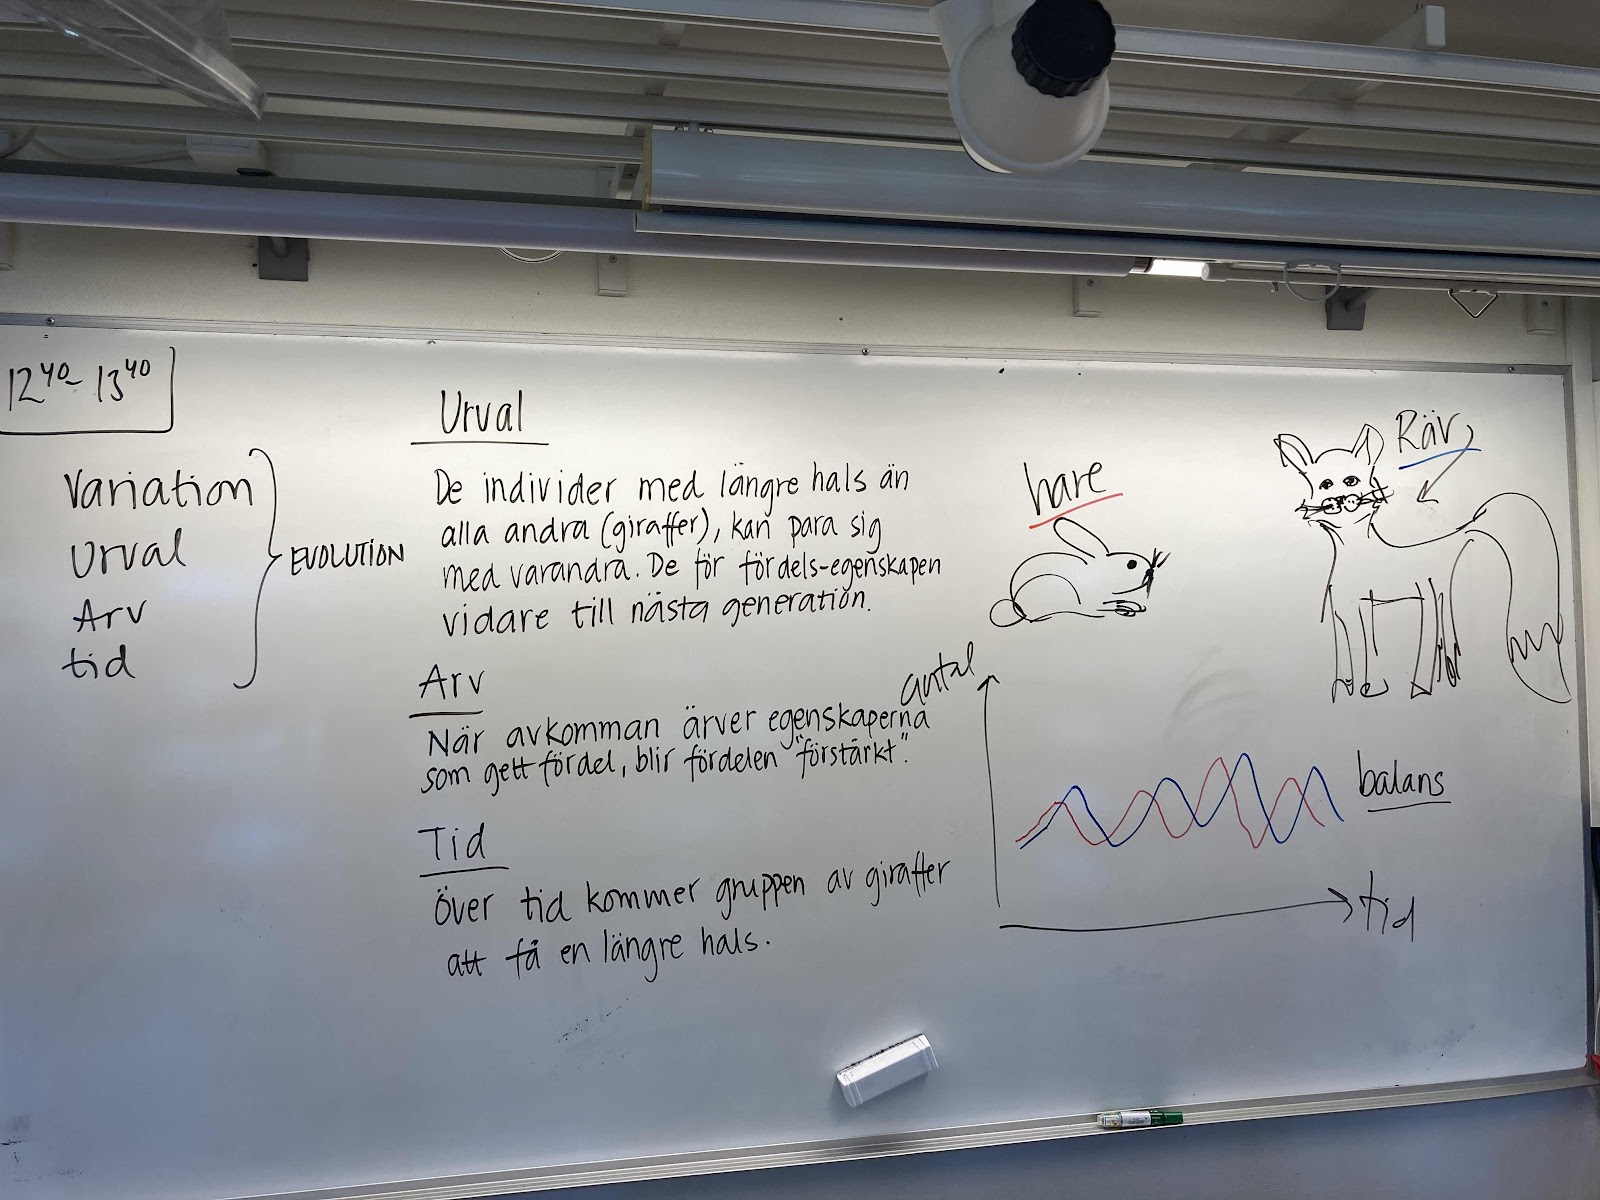 12⁴⁰ - 13⁴⁰
Variation
Urval
Arv
tid
EVOLUTION
Urval
De individer med längre hals än
alla andra (giraffer), kan para sig
med varandra. De för fördels-egenskapen
vidare till nästa generation.
Arv
När avkomman ärver egenskaperna
som gett fördel, blir fördelen "förstärkt".
Tid
Över tid kommer gruppen av giraffer
att få en längre hals.
hare
Räv
antal
balans
tid